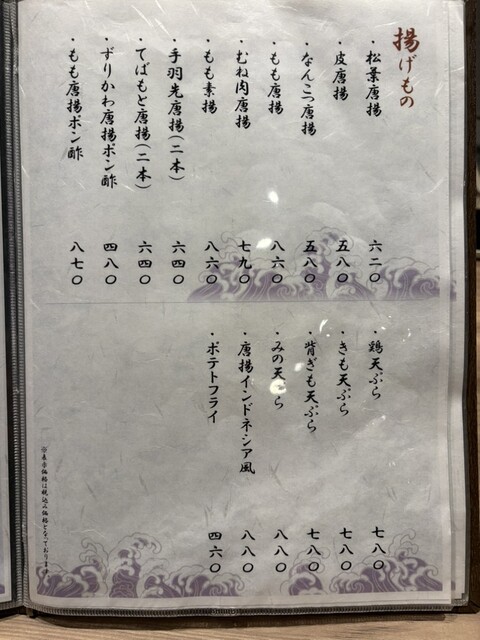 揚げもの
・松葉唐揚 六二〇
・皮唐揚 五八〇
・なんこつ唐揚 五八〇
・もも唐揚 八六〇
・むね肉唐揚 七九〇
・もも素揚 八六〇
・手羽先唐揚(二本) 六四〇
・てばもと唐揚(二本) 六四〇
・ずりかわ唐揚ポン酢 四八〇
・もも唐揚ポン酢 八七〇
・鶏天ぷら 七八〇
・きも天ぷら 七八〇
・背ぎも天ぷら 七八〇
・みの天ぷら 八八〇
・唐揚インドネシア風 八八〇
・ポテトフライ 四六〇
※表示価格は税込み価格となっております